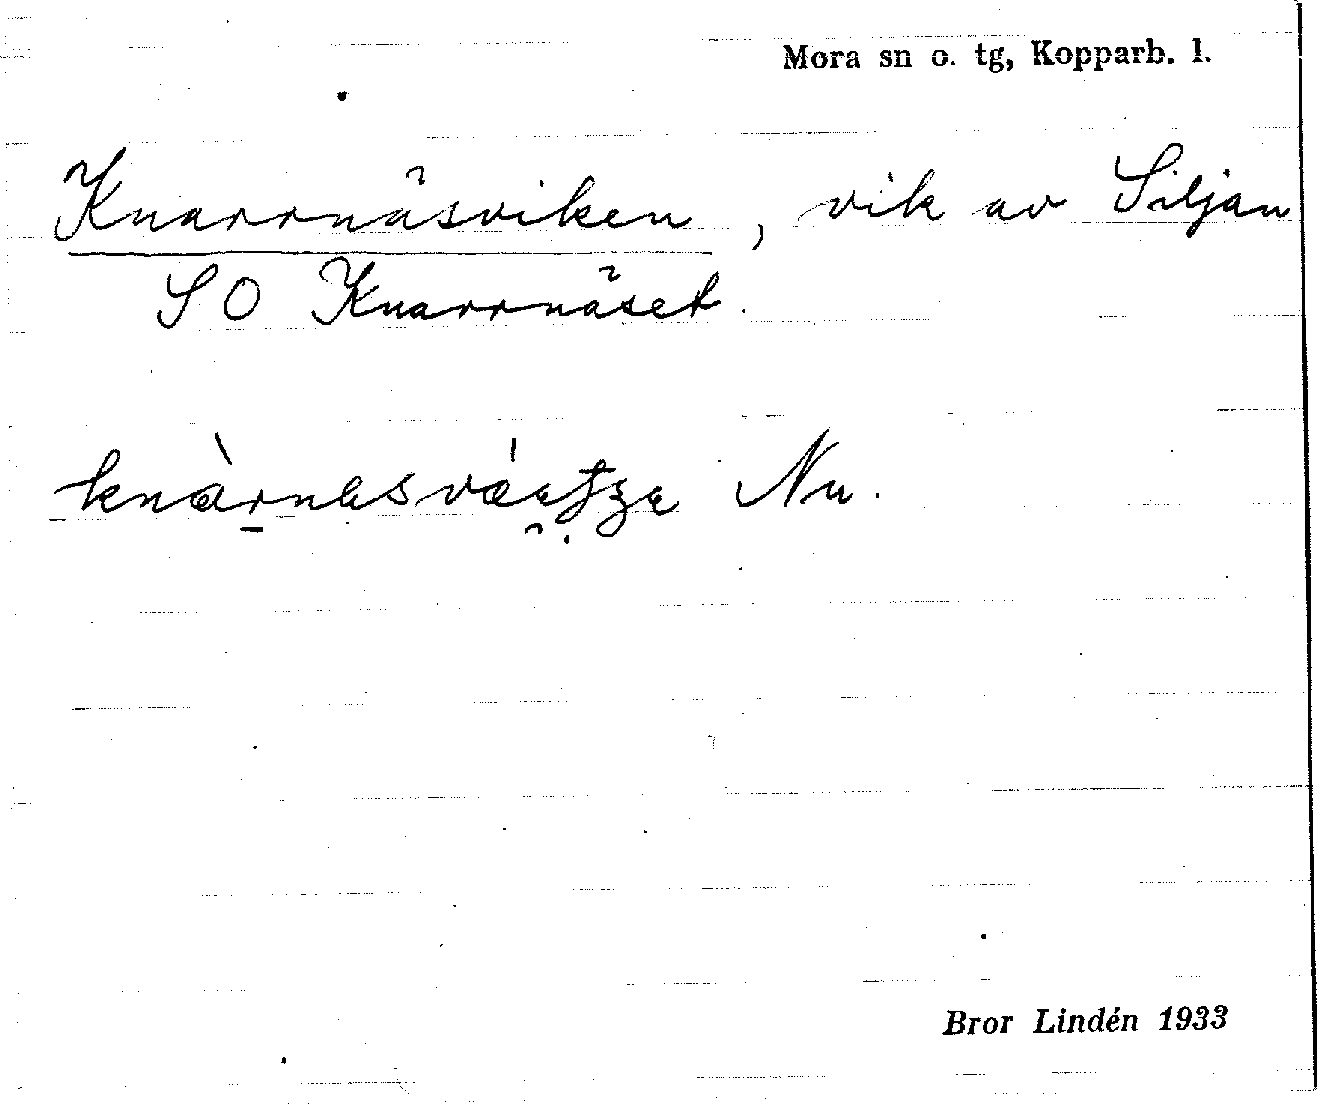 Mora sn o. tg, Kopparb. l.
Knarrnäsviken, vik av Siljan
SO Knarrnäset.
Nu.
Bror Lindén 1933